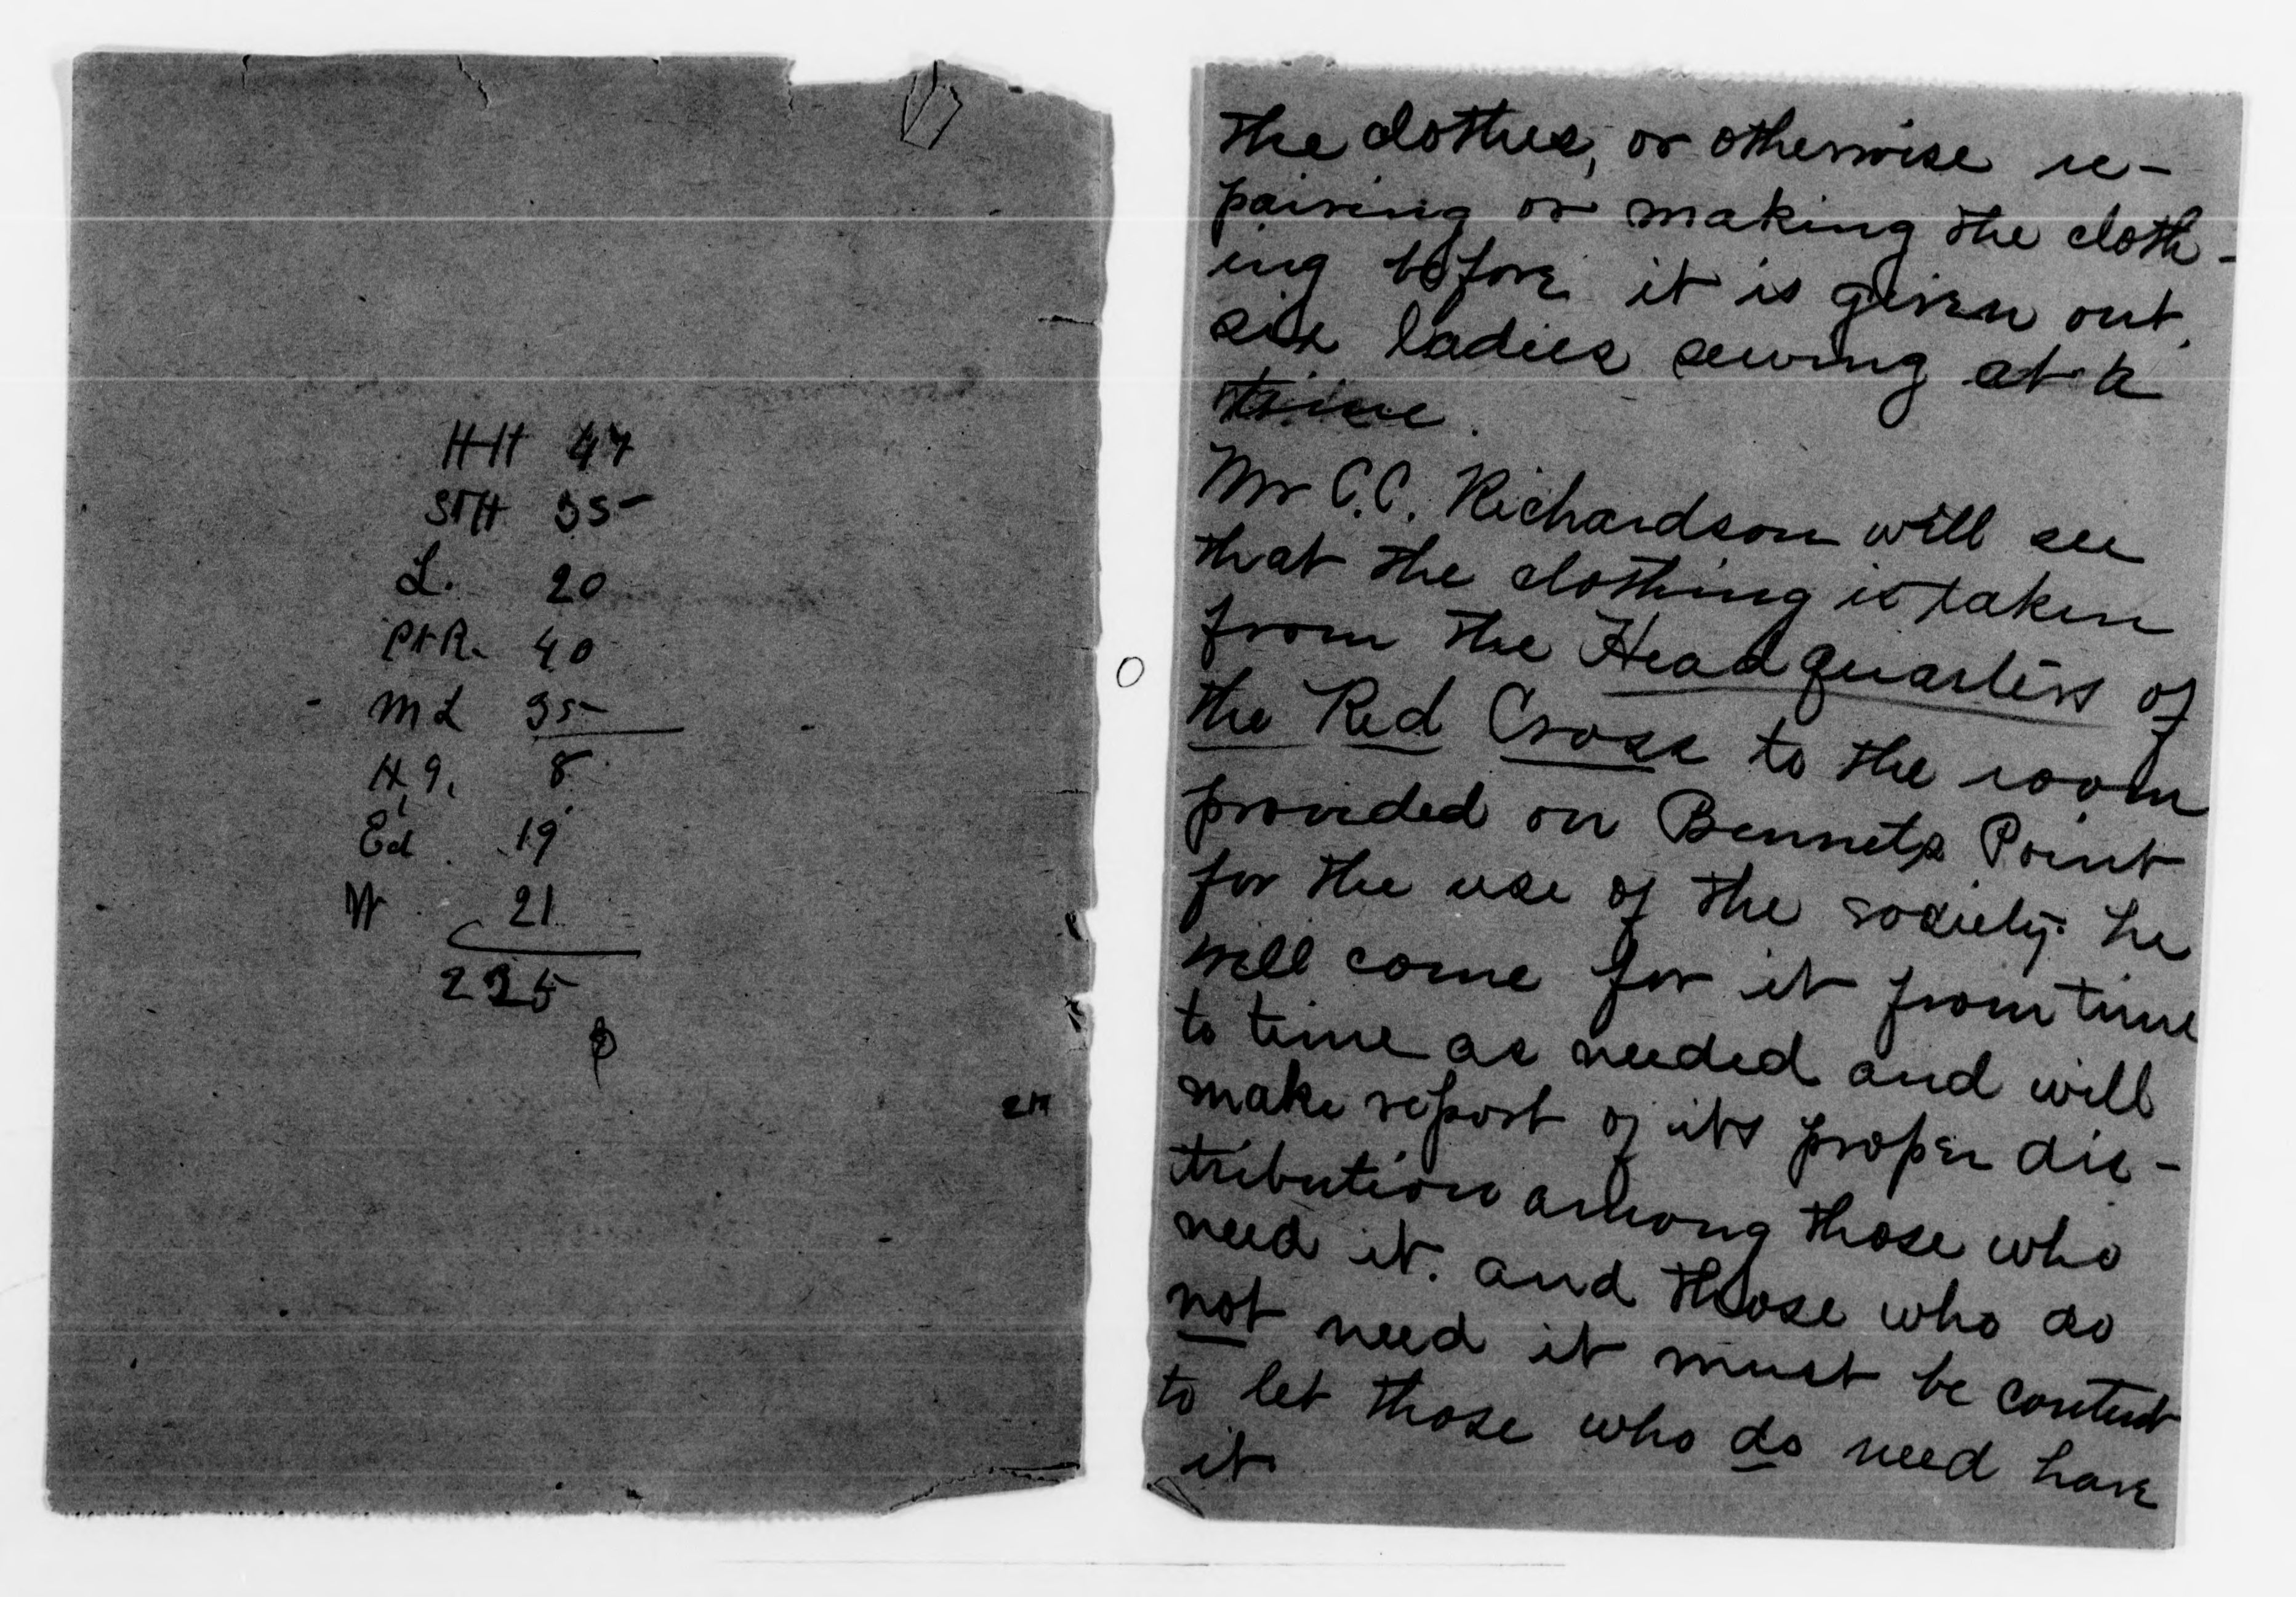 HH 47
StH 35
L. 20
PtR. 40
ML 35
8
Ed 19
W 21
225
the clothes, or otherwise re-
pairing or making the cloth-
ing before it is given out,
six ladies sewing at a
time.
Mr C.C. Richardson will see
that the clothing is taken
from the Headquarters of
the Red Cross to the room
provided on Bennets Point
for the use of the society. he
will come for it from time
to time as needed and will
make report of its proper dis-
tribution among those who
need it. and those who do
not need it must be content
to let those who do need have
it.